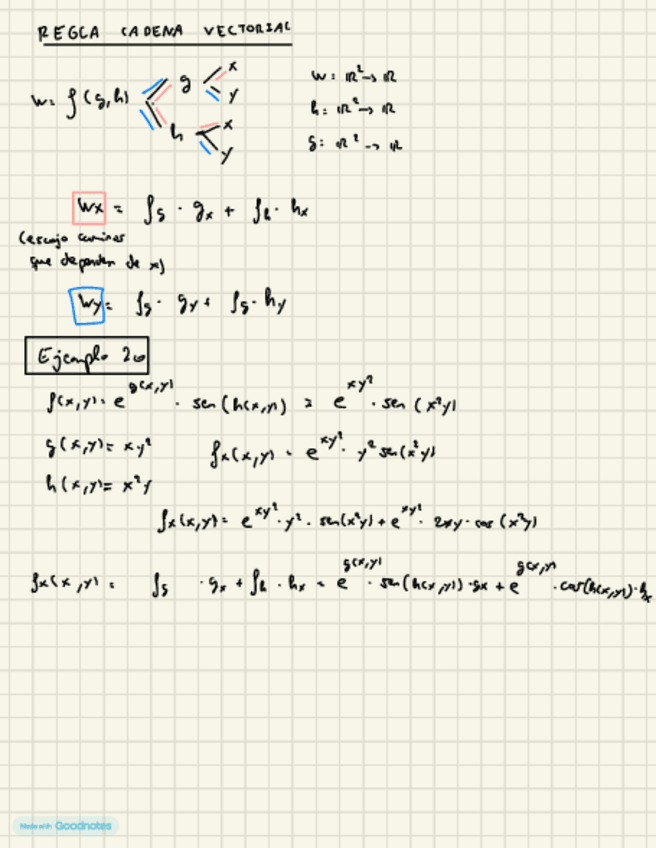 REGLA CADENA VECTORIAL
w = f(g,h) g x y h x y
w: ℝ² → ℝ
h: ℝ² → ℝ
g: ℝ² → ℝ
Wx = fg · gx + fh · hx
(escojo caminos
que dependen de x)
Wy = fg · gy + fg · hy
Ejemplo 20
f(x,y) = e^g(x,y) · sen(h(x,y)) = e^xy² · sen(x²y)
g(x,y) = xy² fx(x,y) = e^xy² · y² sen(x²y)
h(x,y) = x²y
fx(x,y) = e^xy² · y² · sen(x²y) + e^xy² · 2xy · cos(x²y)
fx(x,y) = fg · gx + fh · hx = e^g(x,y) · sen(h(x,y)) · gx + e^g(x,y) · cos(h(x,y)) · hx
Made with Goodnotes